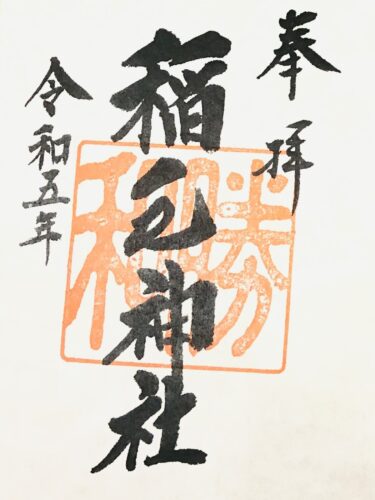 奉拝
勝和
稲毛神社
令和五年